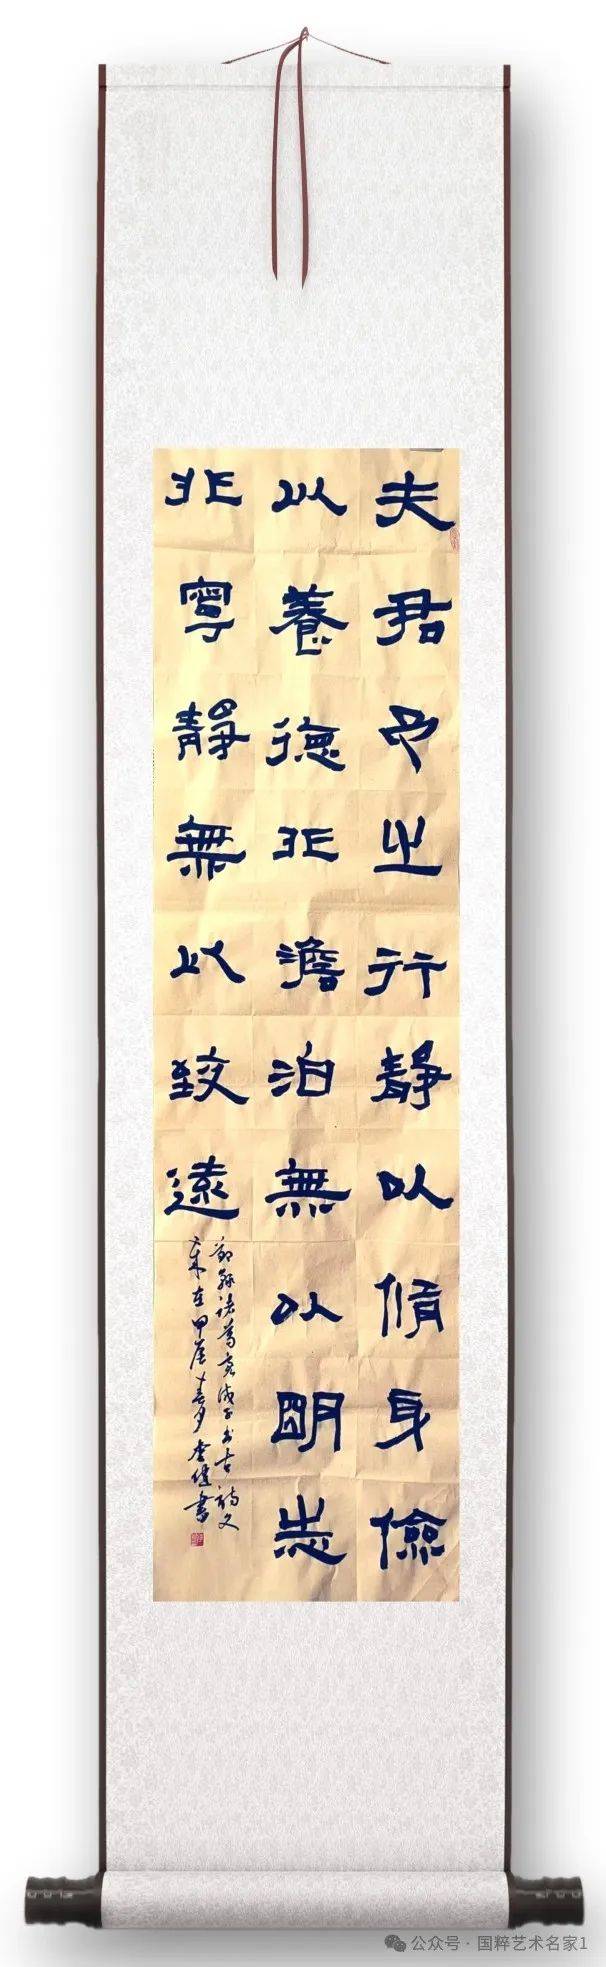 夫君子之行靜以脩身儉
以養德非澹泊無以明志
非寧靜無以致遠
諸葛亮誡子書古詩文
歲在甲辰春月李健書
公众号·国粹艺术名家1